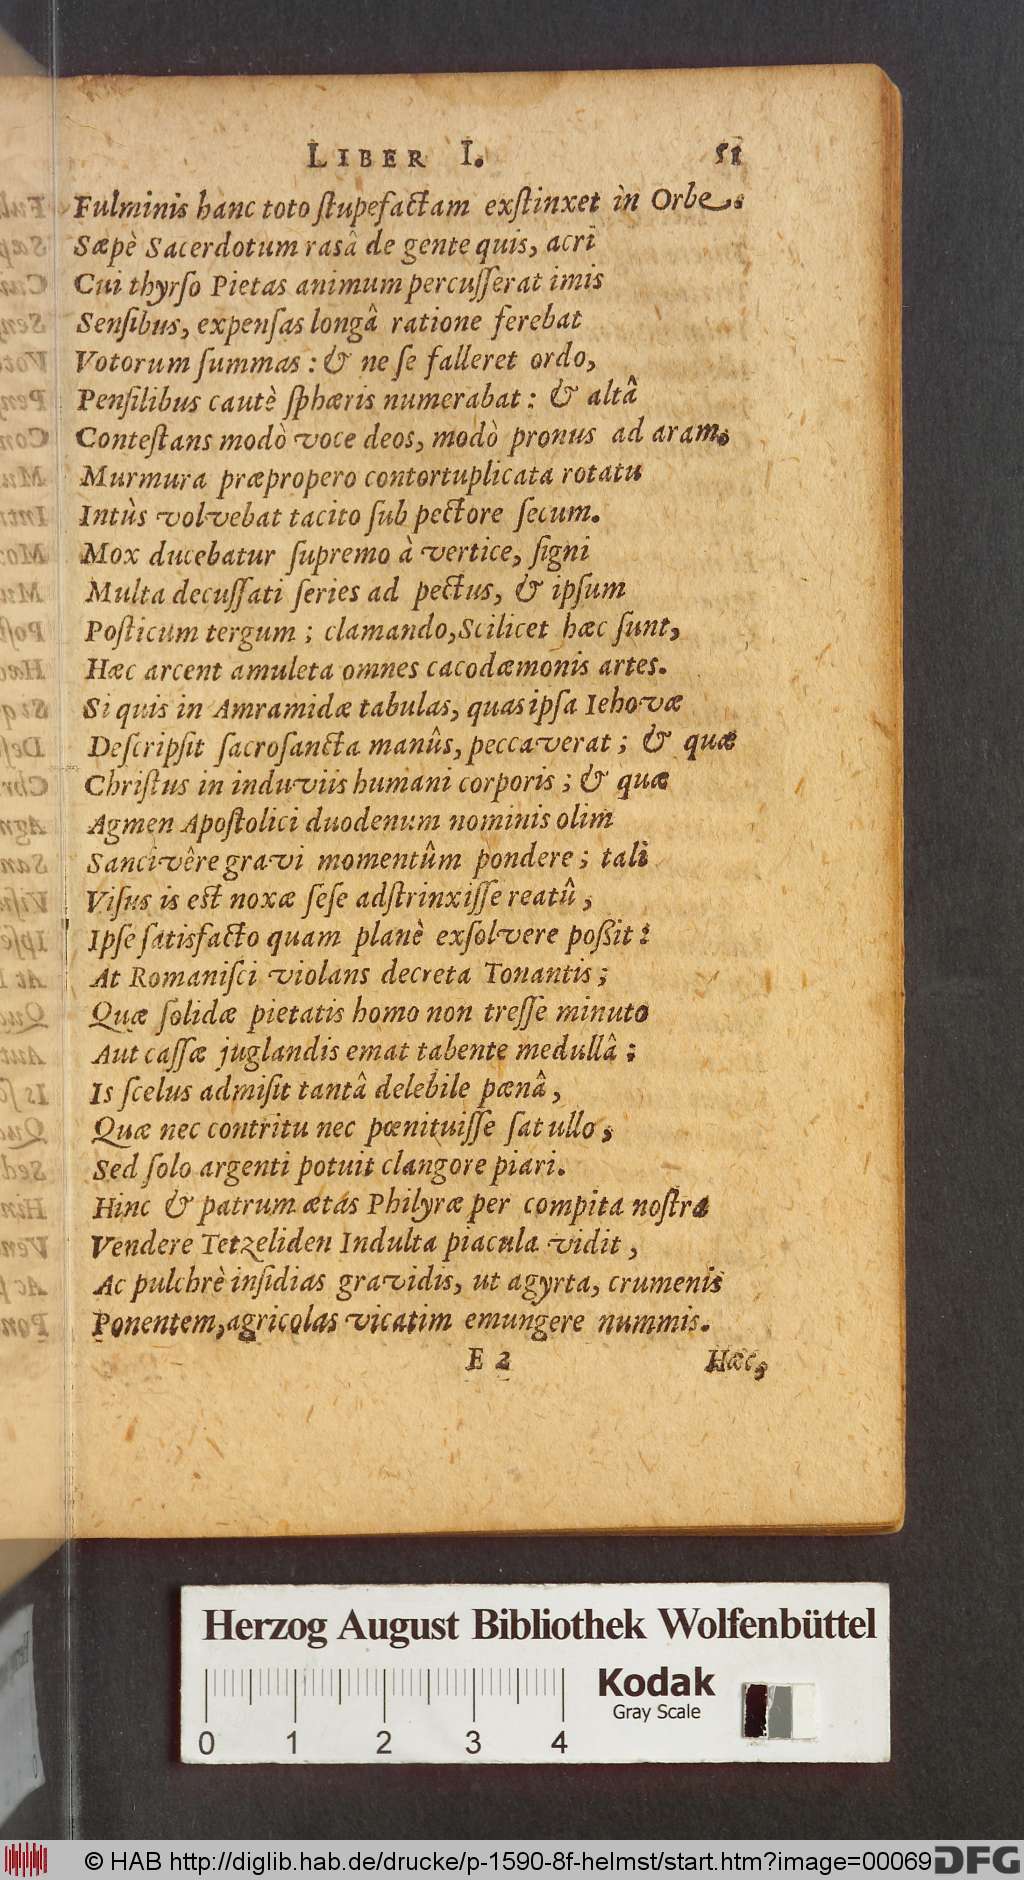 LIBER I. 51
Fulminis hanc toto ſtupefactam exſtinxet ìn Orbe.
Sæpè Sacerdotum rasâ de gente quis, acri
Cui thyrſo Pietas animum percuſſerat imis
Senſibus, expenſas longâ ratione ferebat
Votorum ſummas : & ne ſe falleret ordo,
Penſilibus cautè ſphæris numerabat : & altâ
Conteſtans modò voce deos, modò pronus ad aram,
Murmura præpropero contortuplicata rotatu
Intùs volvebat tacito ſub pectore ſecum.
Mox ducebatur ſupremo à vertice, ſigni
Multa decuſſati ſeries ad pectus, & ipſum
Poſticum tergum ; clamando, Scilicet hæc ſunt,
Hæc arcent amuleta omnes cacodæmonis artes.
Si quis in Amramidæ tabulas, quas ipſa Iehovæ
Deſcripſit ſacroſancta manûs, peccaverat ; & quæ
Chriſtus in induviis humani corporis ; & quæ
Agmen Apoſtolici duodenum nominis olim
Sancivêre gravi momentûm pondere ; tali
Viſus is eſt noxæ ſeſe adſtrinxiſſe reatû ,
Ipſe ſatisfacto quam planè exſolvere poßit :
At Romaniſci violans decreta Tonantis ;
Quæ ſolidæ pietatis homo non treſſe minuto
Aut caſſæ juglandis emat tabente medullâ :
Is ſcelus admiſit tantâ delebile pœnâ ,
Quæ nec contritu nec pœnituiſſe ſat ullo ,
Sed ſolo argenti potuit clangore piari.
Hinc & patrum ætas Philyræ per compita noſtra
Vendere Tetzeliden Indulta piacula vidit ,
Ac pulchrè inſidias gravidis, ut agyrta, crumenis
Ponentem, agricolas vicatim emungere nummis.
E 2 Hæc,
Herzog August Bibliothek Wolfenbüttel
Kodak
Gray Scale
0 1 2 3 4
© HAB http://diglib.hab.de/drucke/p-1590-8f-helmst/start.htm?image=00069
DFG